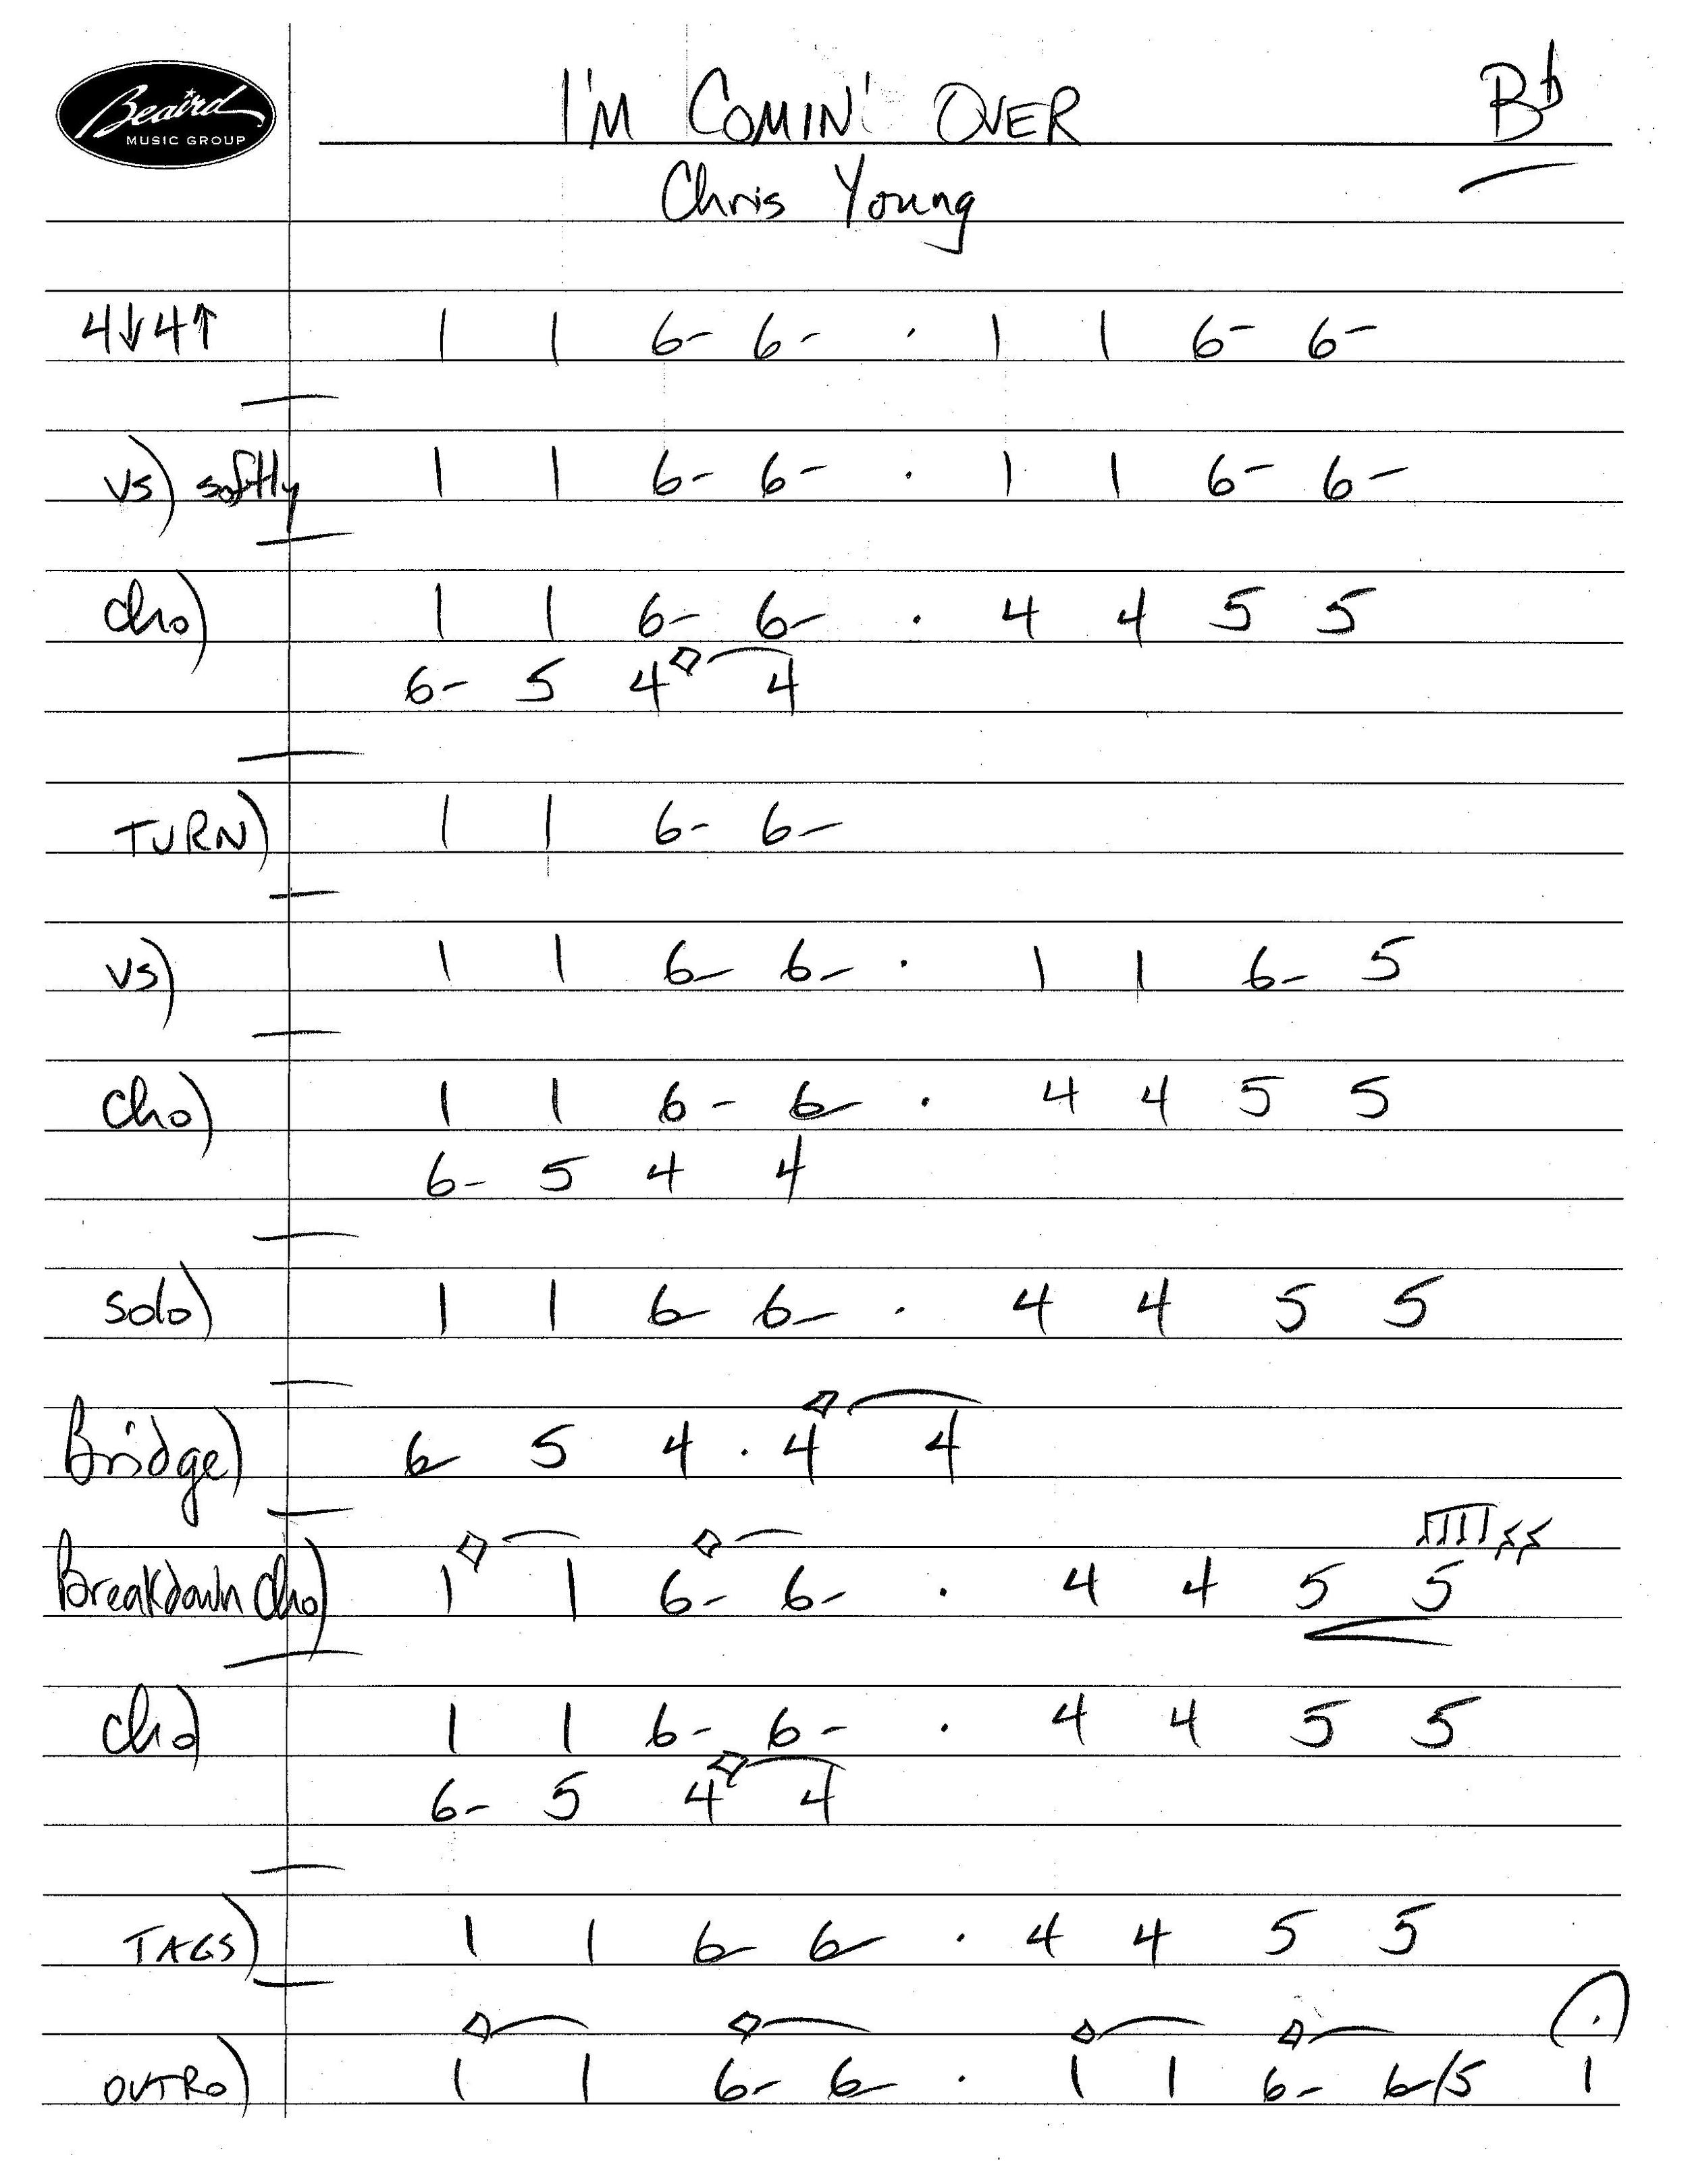 Beaird
MUSIC GROUP
I'M COMIN' OVER B♭
Chris Young
4↓4↑ 1 1 6- 6- · 1 1 6- 6-
vs) softly 1 1 6- 6- · 1 1 6- 6-
cho) 1 1 6- 6- · 4 4 5 5
6- 5 4◇ 4
TURN) 1 1 6- 6-
vs) 1 1 6- 6- · 1 1 6- 5
cho) 1 1 6- 6- · 4 4 5 5
6- 5 4 4
solo) 1 1 6- 6- · 4 4 5 5
Bridge) 6- 5 4 · 4◇ 4
Breakdown cho) 1◇ 1 6-◇ 6- · 4 4 5 5
cho) 1 1 6- 6- · 4 4 5 5
6- 5 4◇ 4
TAGS) 1 1 6- 6- · 4 4 5 5
OUTRO) 1◇ 1 6-◇ 6- · 1◇ 1 6-◇ 6-/5 1